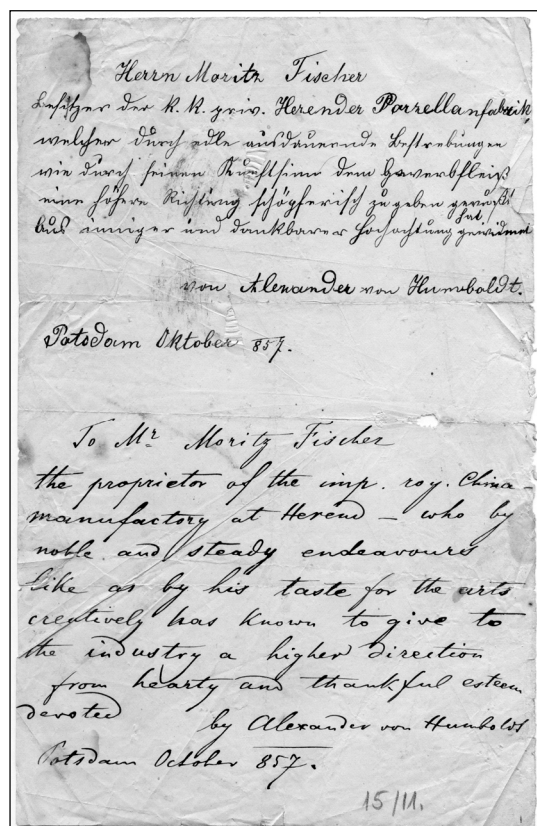 Herrn Moritz Fischer
Besitzer der K. K. priv. Herender Porzellanfabrik,
welcher durch edle ausdauernde Bestrebungen
wie durch seinen Kunstsinn dem Gewerbfleiß
eine höhere Richtung schöpferisch zu geben gewußt
hat.
Aus inniger und dankbarer Hochachtung gewidmet
von Alexander von Humboldt.
Potsdam Oktober 857.
To Mr Moritz Fischer
the proprietor of the imp. roy. China-
manufactory at Herend – who by
noble and steady endeavours
like as by his taste for the arts
creatively has known to give to
the industry a higher direction
from hearty and thankful esteem
devoted by Alexander von Humboldt
Potsdam October 857.
15/11.